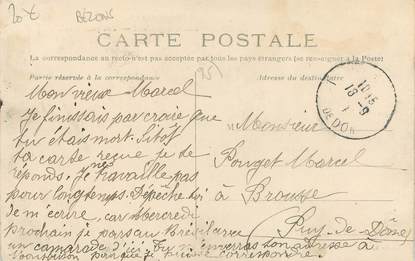 20 €
BEZONS
CARTE POSTALE
La correspondance au recto n'est pas acceptée par tous les pays étrangers (se renseigner à la Poste)
Partie réservée à la correspondance
Adresse du destinataire
(95)
Mon vieux Marcel
Je finissais par croire que
tu étais mort. Sitôt
ta carte reçue je te
réponds. Je ne travaille pas
pour longtemps. Dépêche toi
de m'écrire, car Mercredi
prochain je pars au
un camarade d'ici. Tu m'enverras son adresse à
pour que je puisse correspondre.
Monsieur
Pouget Marcel
à Brousse
Puy-de-Dôme